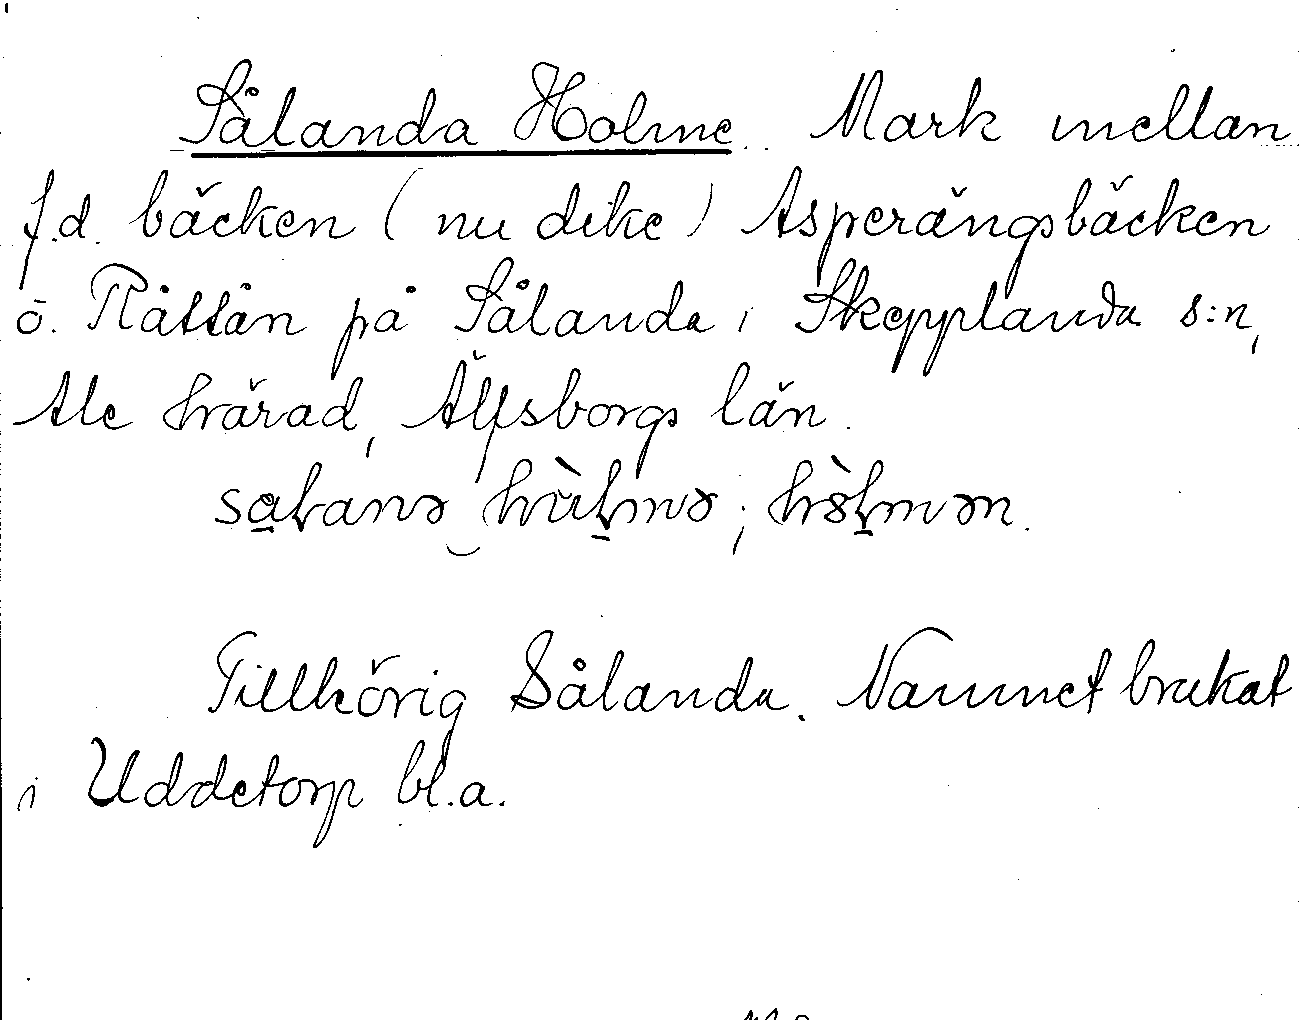 Sålanda Holme. Mark mellan
f.d. bäcken (nu dike) Asperängsbäcken
o. Råttån på Sålanda i Skepplanda s:n,
Ale härad, Älfsborgs län.
Tillhörig Sålanda. Namnet brukat
i Uddetorp bl.a.